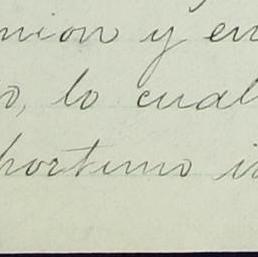 nion y en
o, lo cual
portuno i